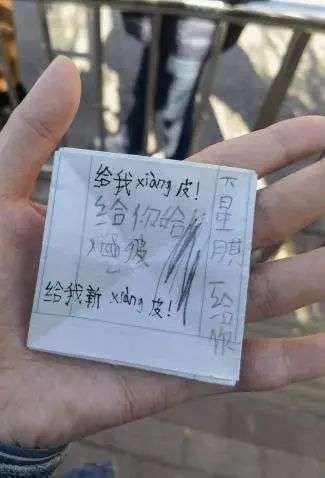 给我xiàng皮！
给你给
给我新xiàng皮！
下星期一给你